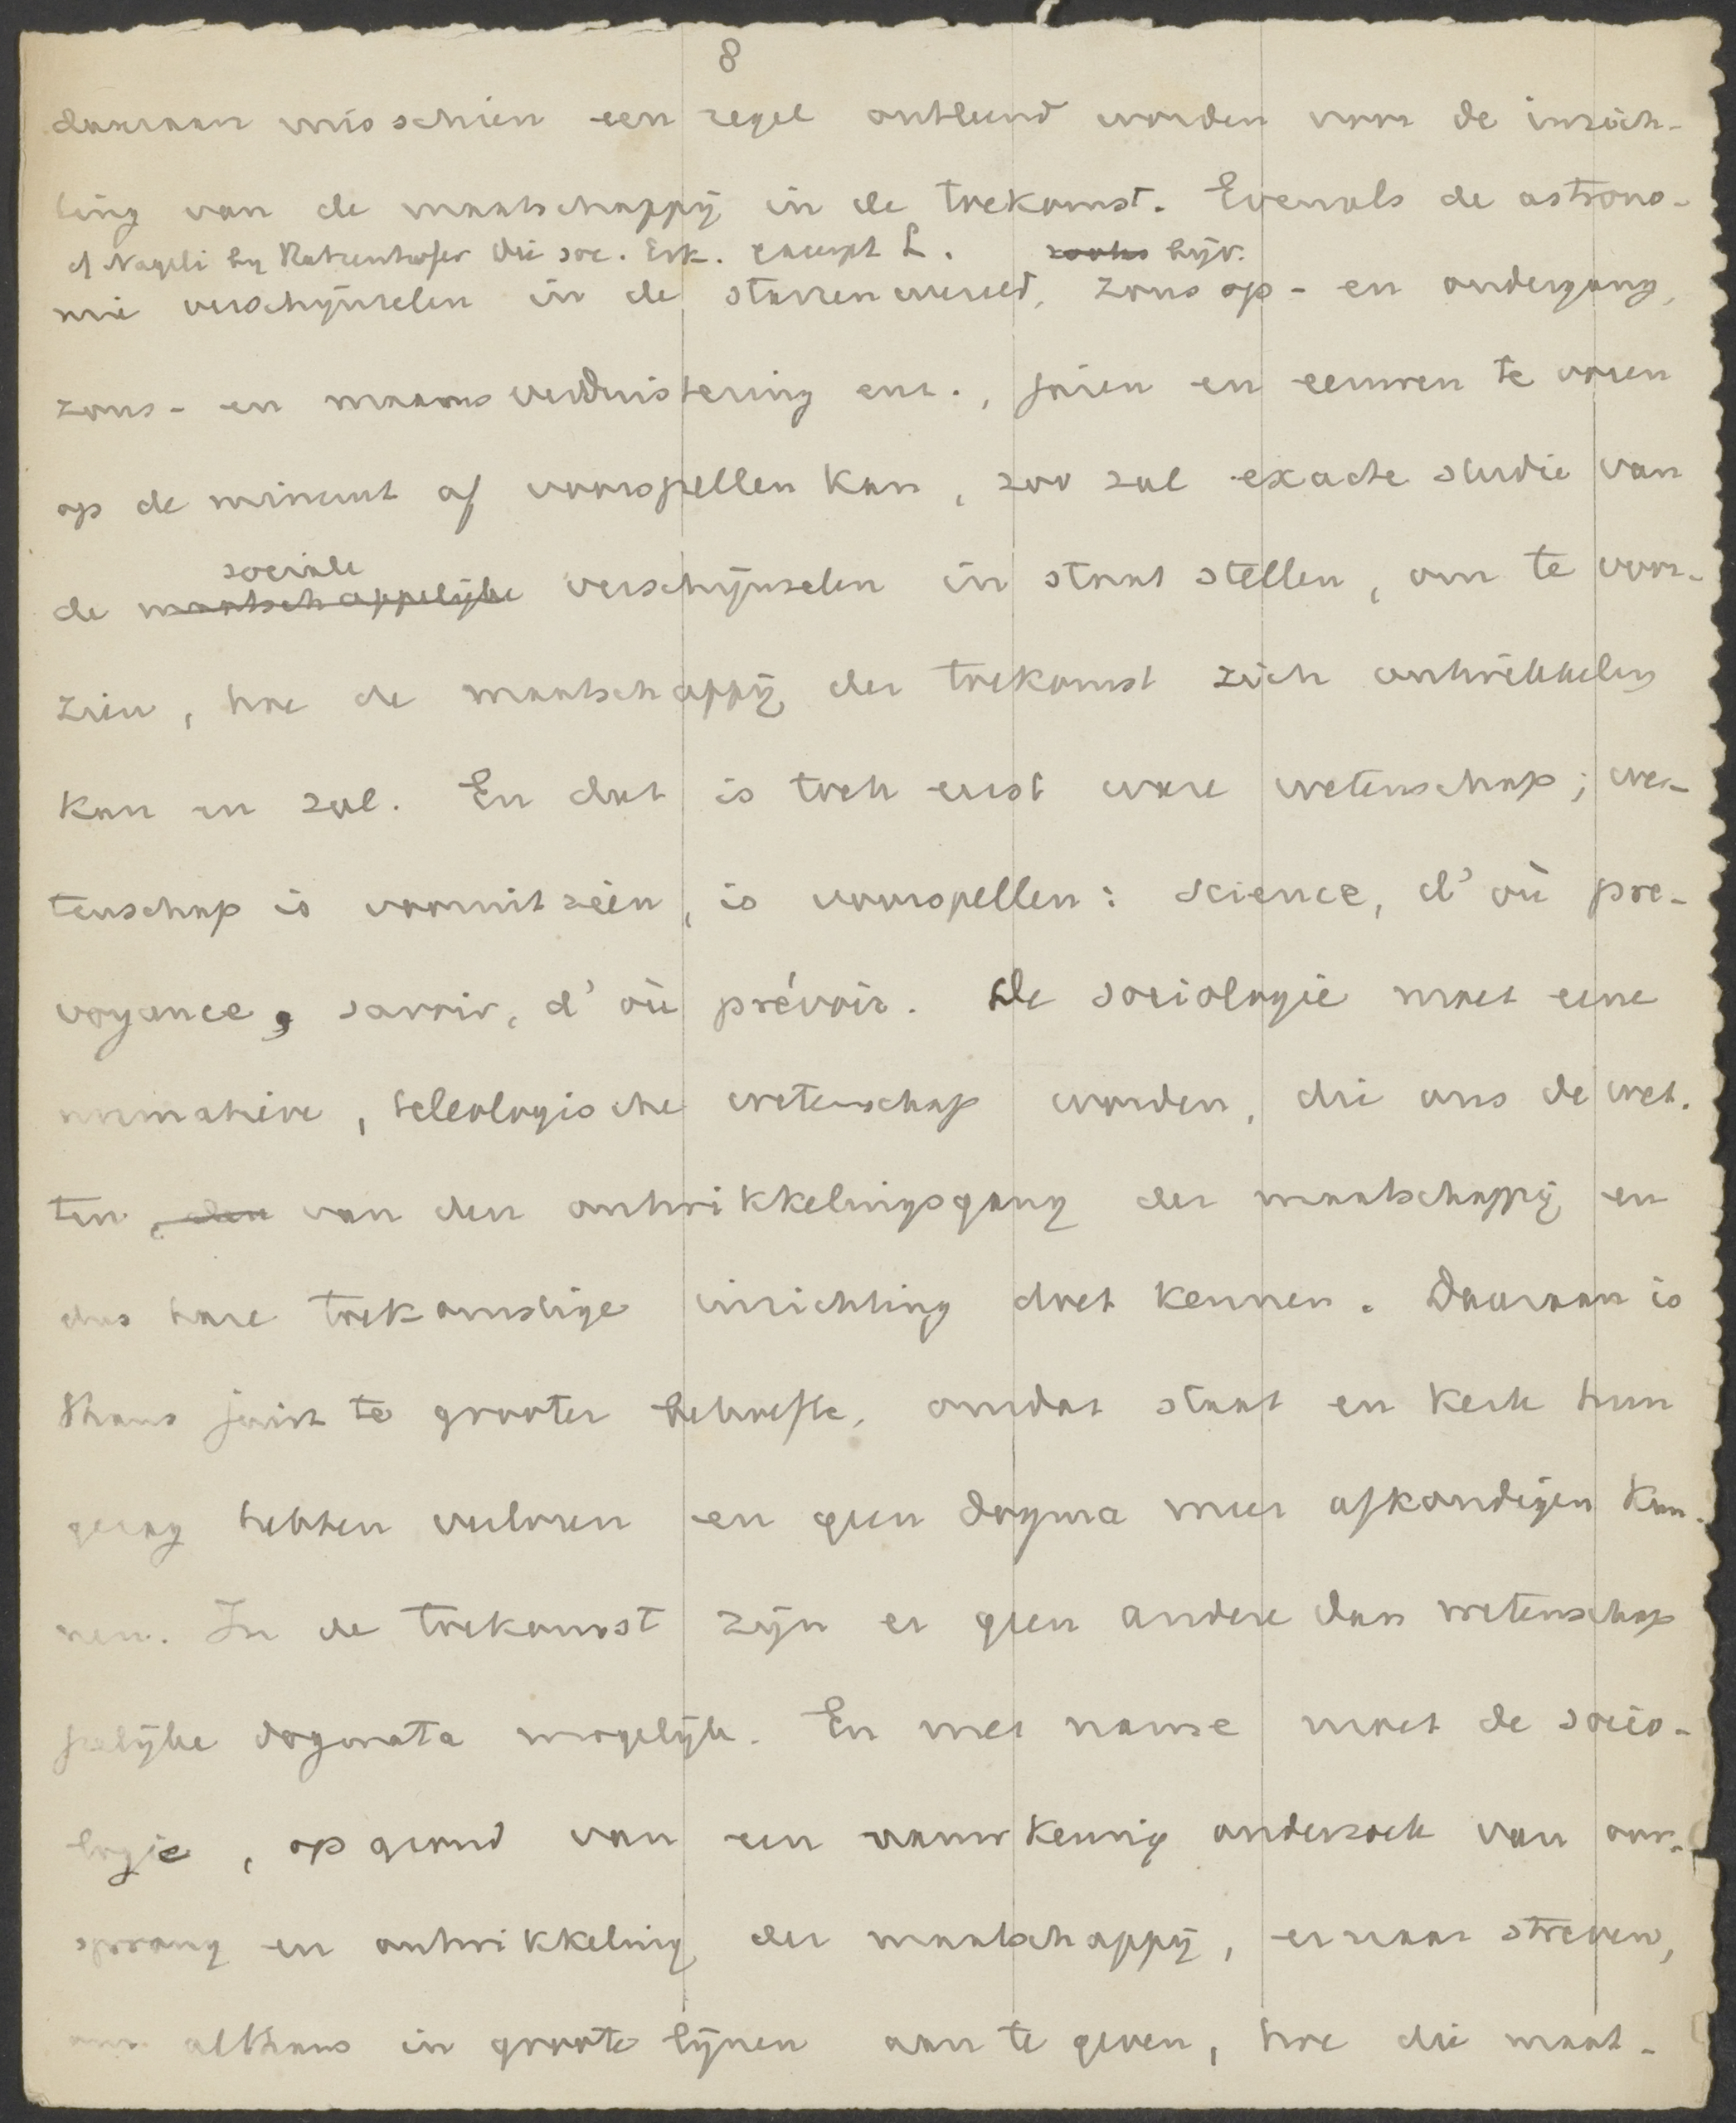 8
daaraan misschien een regel ontleend worden voor de inrich-
ting van de maatschappij in de toekomst. Evenals de astrono-
cf Nageli by Ratzenhofer Die soc. Erk. excerpt L. zooals bijv.
mie verschijnselen in de starrenwereld, zons op- en ondergang,
zons- en maansverduistering enz., jaren en eeuwen te voren
op de minuut af voorspellen kan, zoo zal exacte studie van
sociale
de maatschappelijke verschijnselen in staat stellen, om te voor-
zien, hoe de maatschappij der toekomst zich ontwikkelen
kan en zal. En dat is toch eerst ware wetenschap; we-
tenschap is vooruitzien, is voorspellen: science, d'où pre-
voyance, savoir, d'où prévoir. De sociologie moet eene
normatieve, teleologische wetenschap worden, die ons de wet-
ten, den van den ontwikkelingsgang der maatschappij en
dus hare toekomstige inrichting doet kennen. Daaraan is
thans juist te grooter behoefte, omdat staat en kerk hun
gezag hebben verloren en geen dogma meer afkondigen kun-
nen. In de toekomst zijn er geen andere dan wetenschap
pelijke dogmata mogelijk. En met name moet de socio-
logie, op grond van een nauwkeurig onderzoek van oor-
sprong en ontwikkeling der maatschappij, ernaar streven,
om althans in groote lijnen aan te geven, hoe die maat-